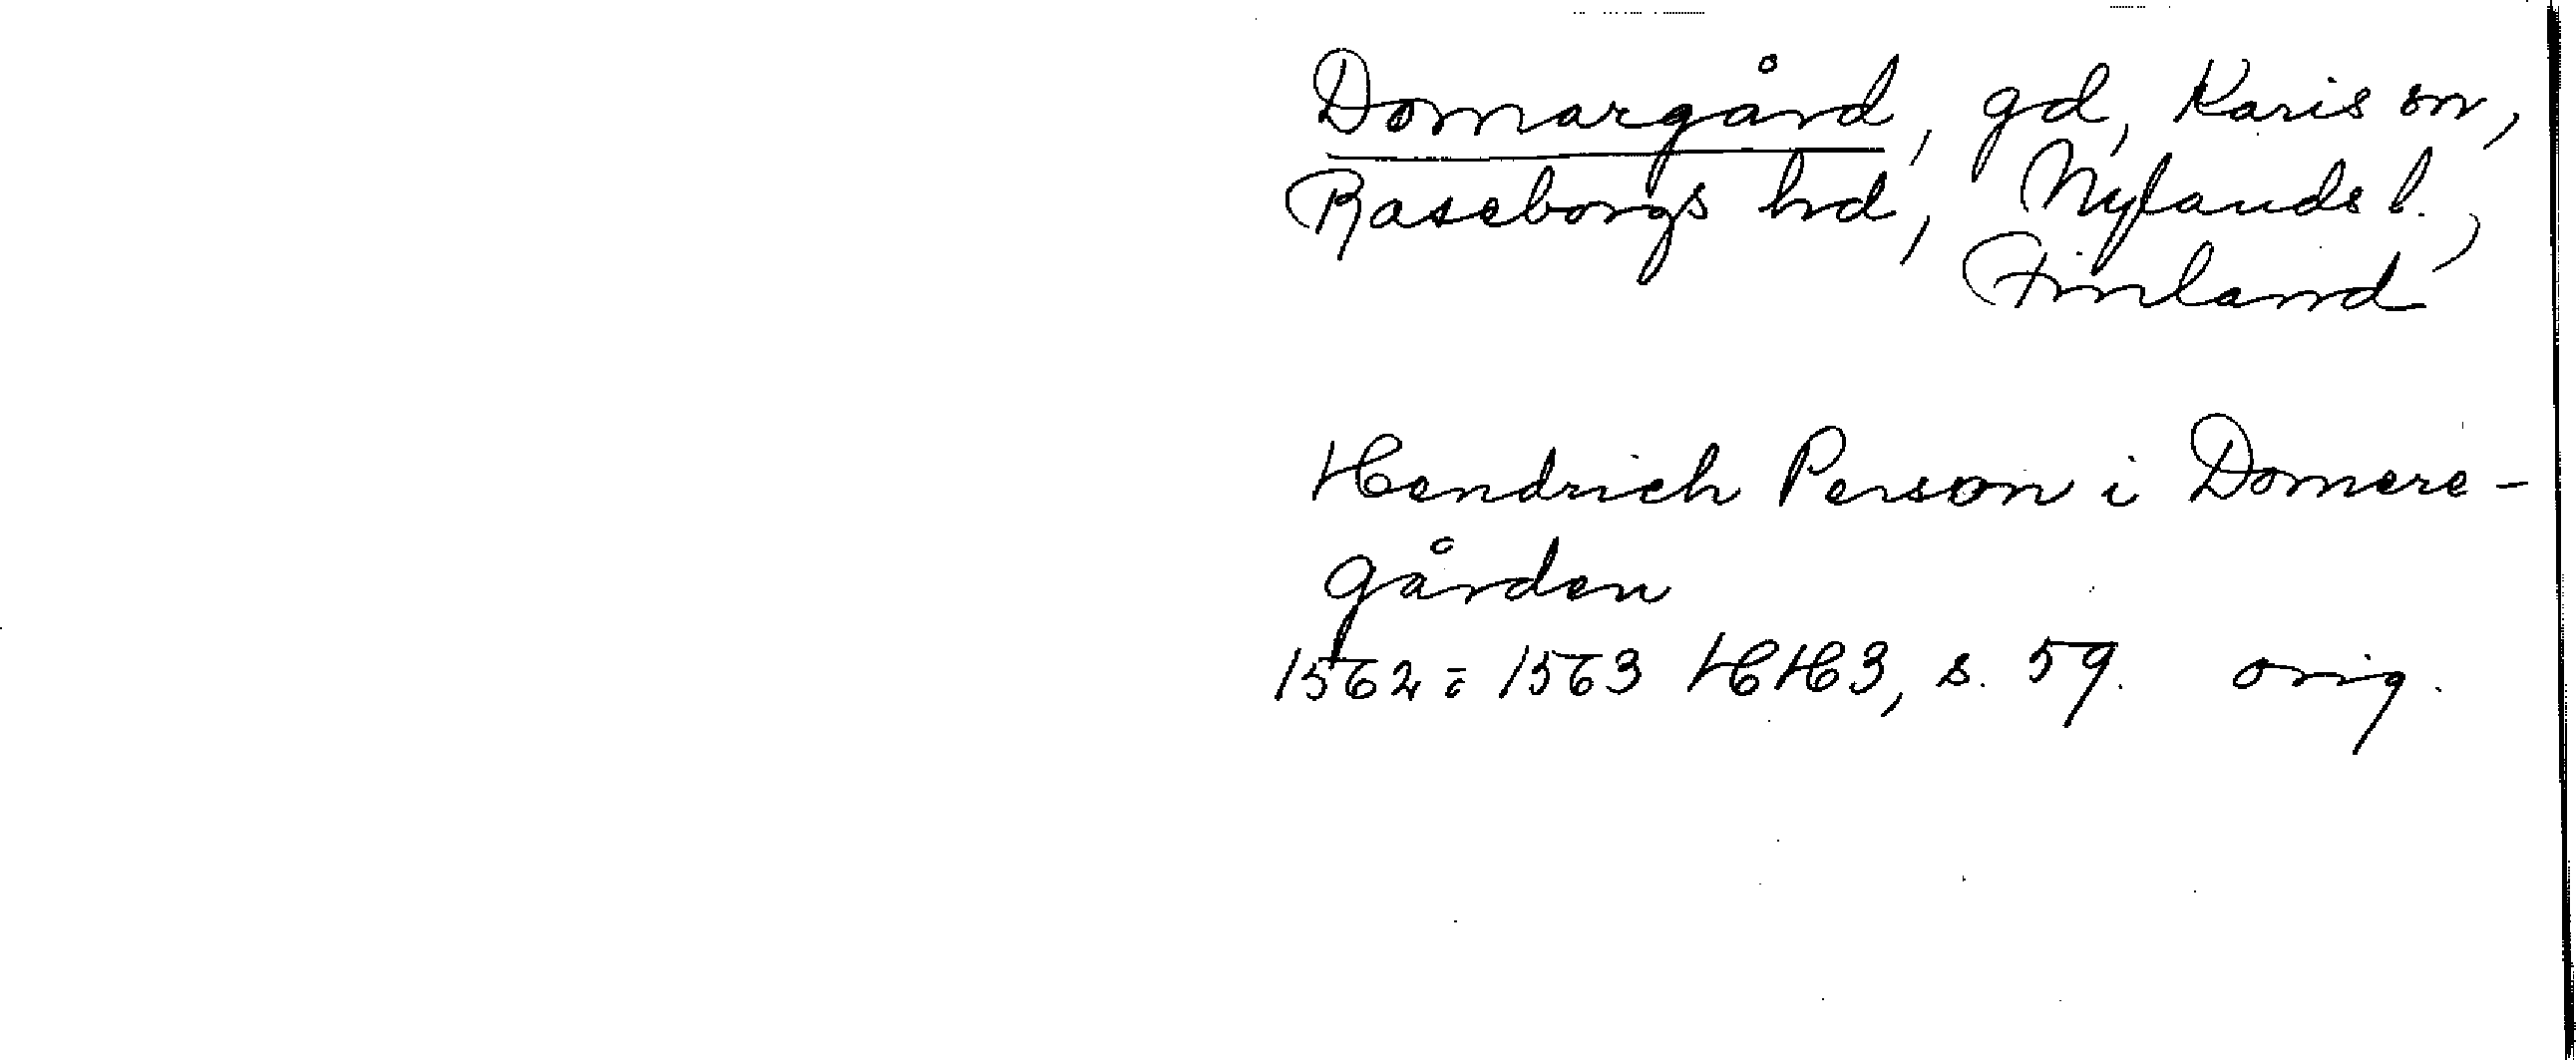 Domargård, gd, Karis sn,
Raseborgs hrd, Nylands l.,
Finland
Hendrich Person i Domere-
gården
1562 : 1563 HH3, s. 59. orig.